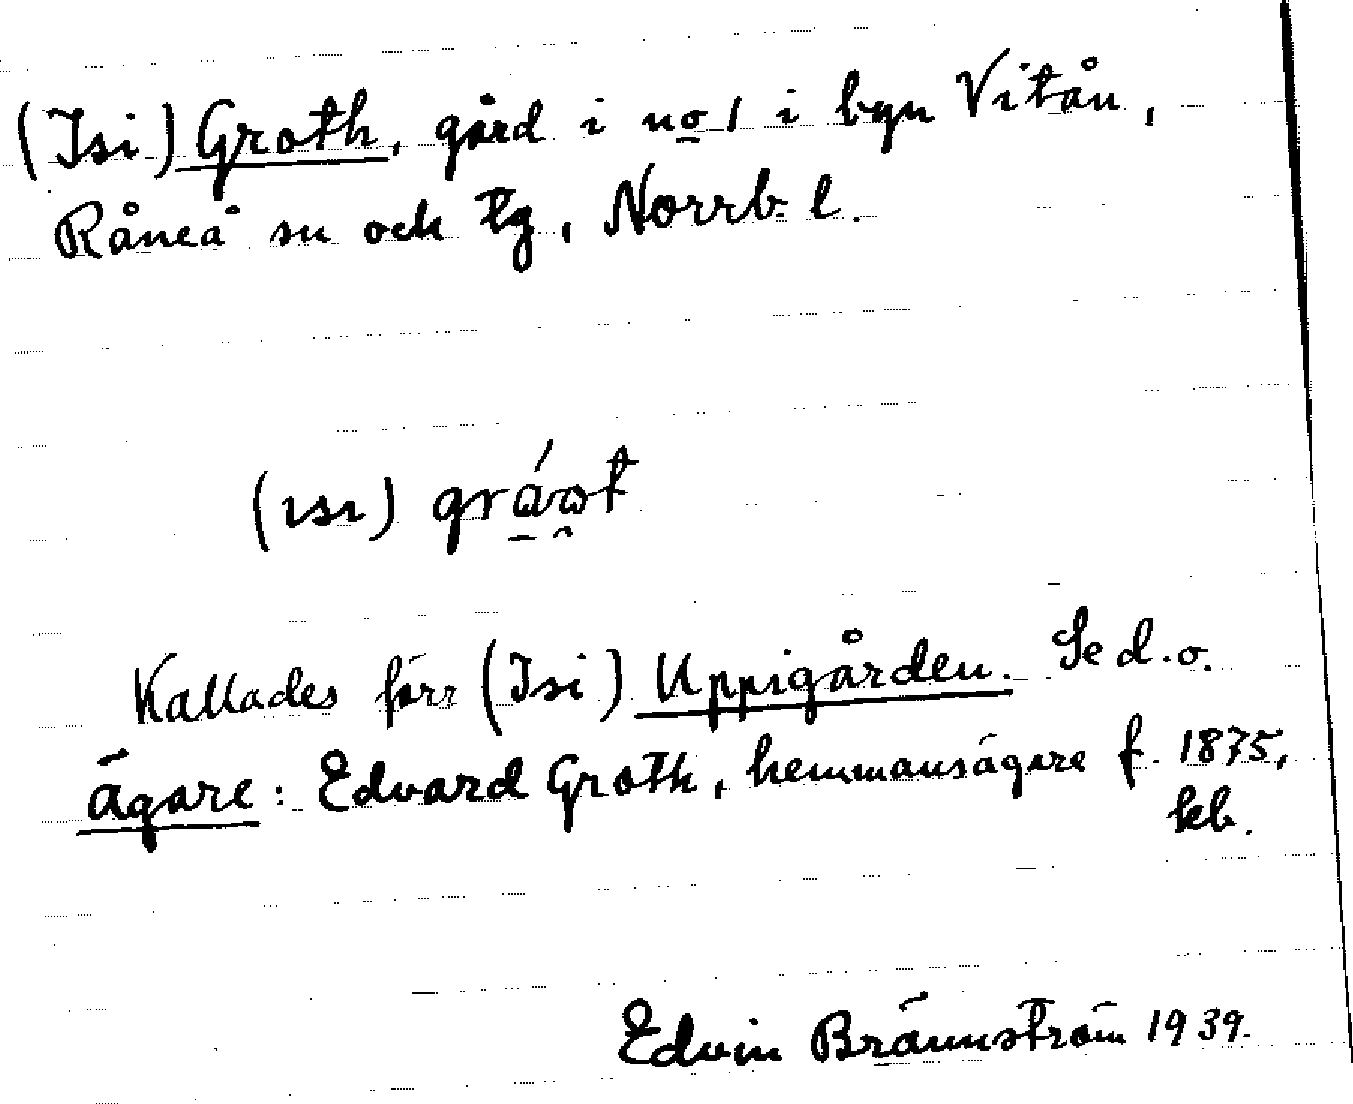 (Isi) Groth, gård i no 1 i byn Vitån,
Råneå sn och tg, Norrb. l.
(ısı)
Kallades förr (Isi) Uppigården. Se d.o.
Ägare: Edvard Groth, hemmansägare f. 1875,
kb.
Edvin Brännström 1939.